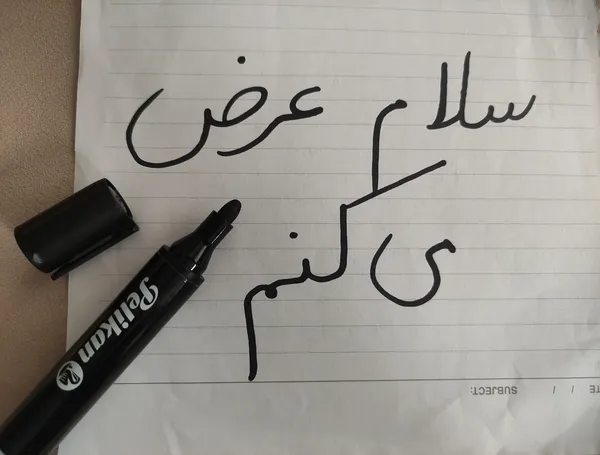 سلام عرض
ی کنم
Pelikan
SUBJECT:
TE / /